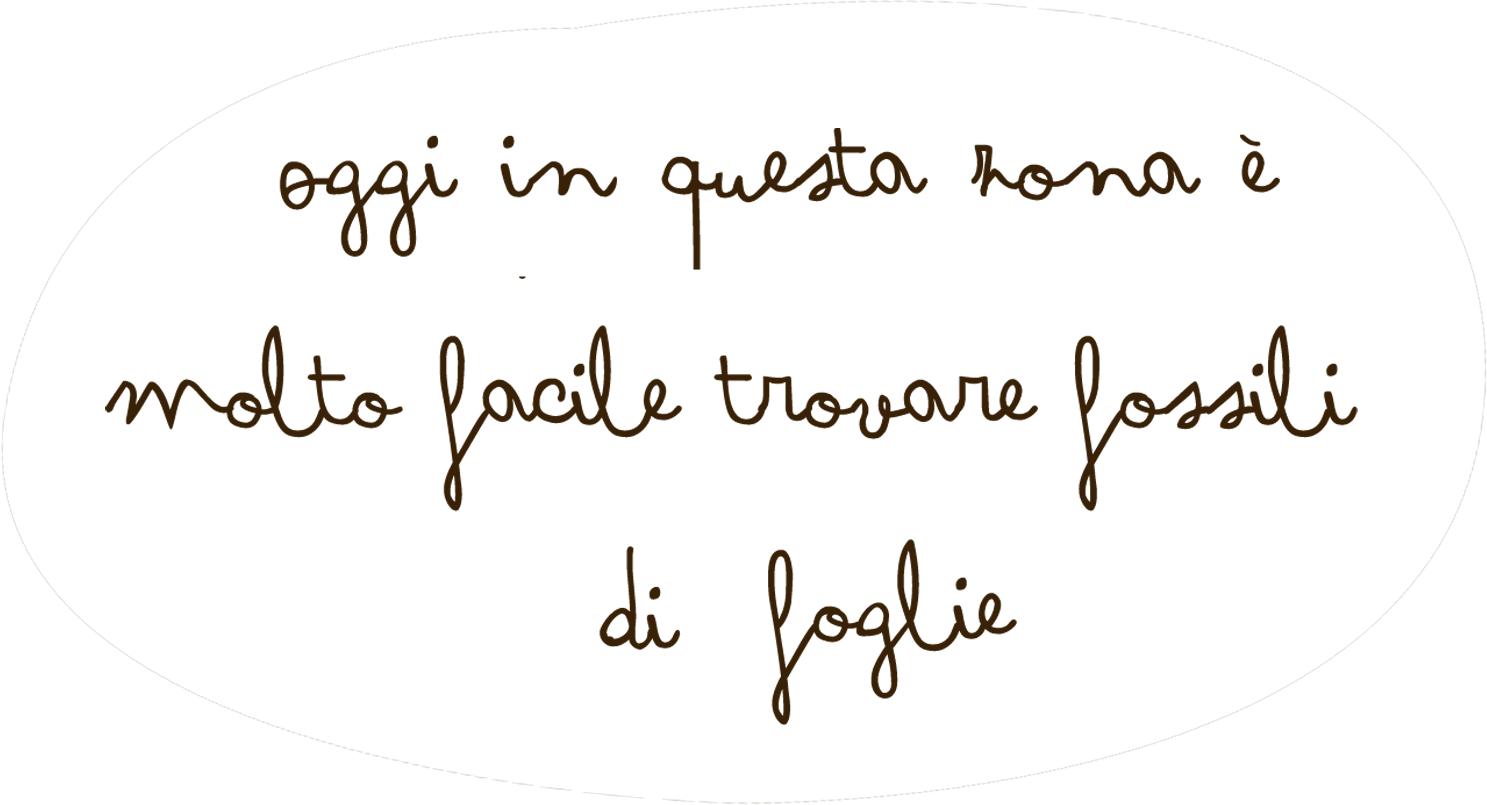 oggi in questa zona è
molto facile trovare fossili
di foglie